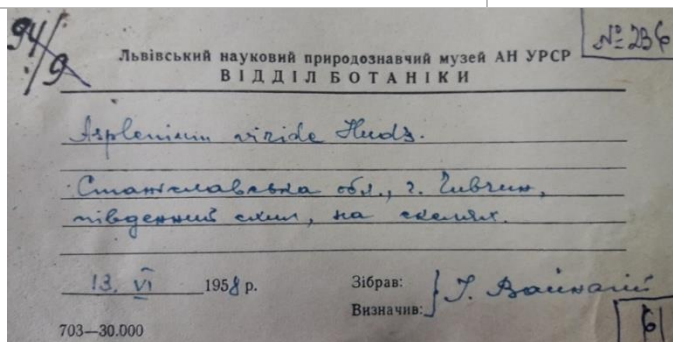 94/9
№ 236
Львівський науковий природознавчий музей АН УРСР
ВІДДІЛ БОТАНІКИ
Asplenium viride Huds.
Станіславська обл., г. Чивчин,
південний схил, на скелях.
13. VI 1958 р.
Зібрав:
Визначив: І.
703—30.000
6